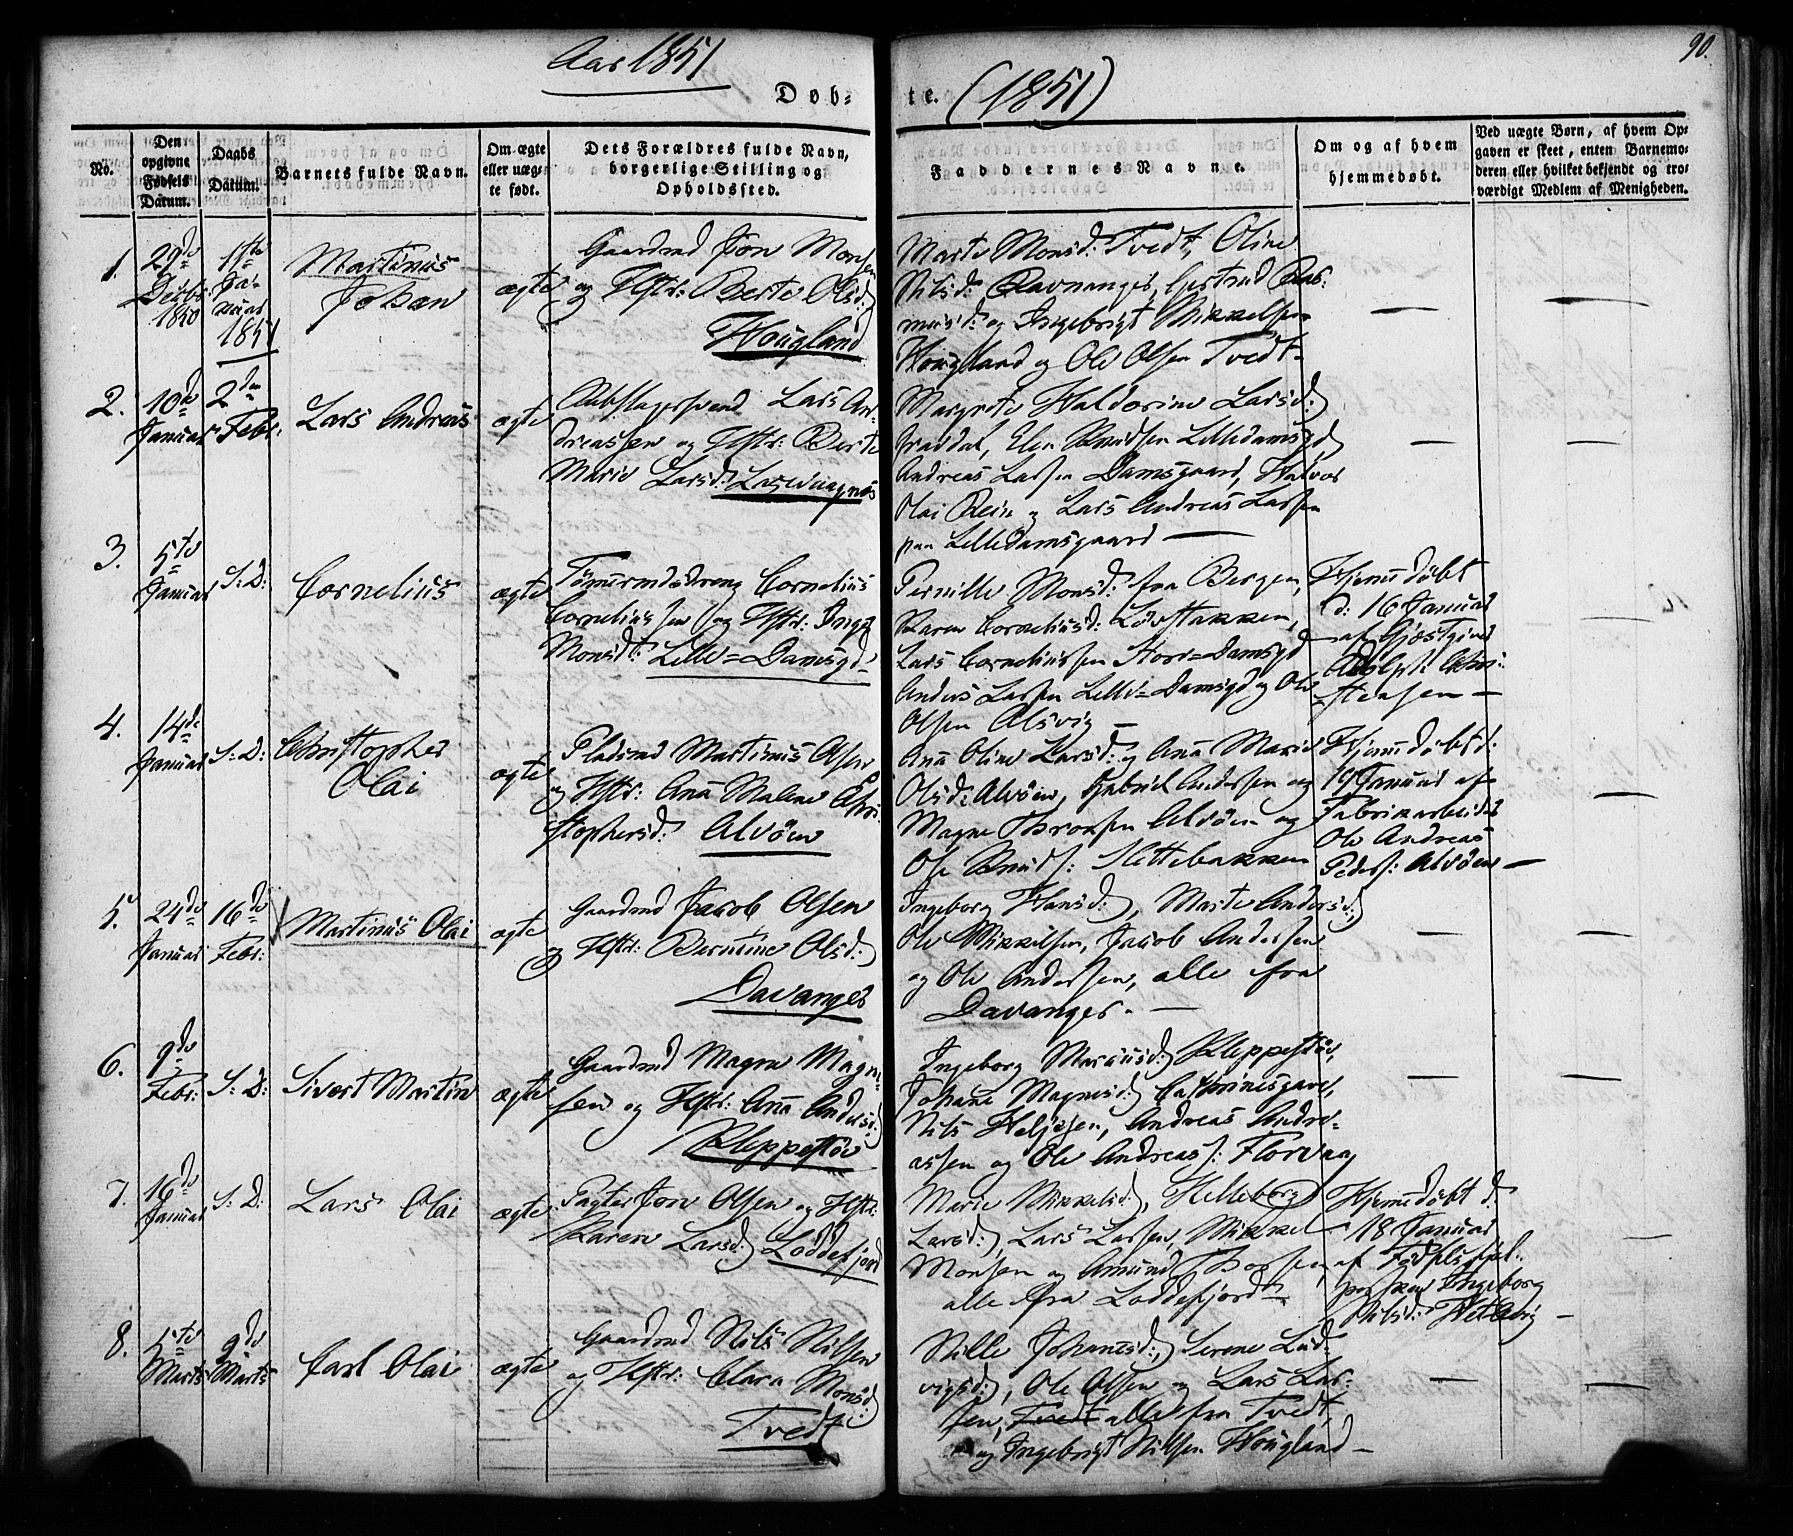 Aar 1851
Døb-
te. (1851)
90.
No.
Den opgivne Fødsels Datum.
Daabs Datum.
Barnets fulde Navn.
Om ægte eller uægte født.
Dets Forældres fulde Navn, borgerlige Stilling og Opholdssted.
Faddernes Navne.
Om og af hvem hjemmedøbt.
Ved uægte Børn, af hvem Opgaven er skeet, enten Barnemoderen eller hvilket bekjendt og troværdigt Medlem af Menigheden.
1.
29de Decbr: 1850
1ste Januar 1851
Martinus
Johan
ægte
Gaardmd Jon Monsen
og Hstr: Berte Olsd:
Hougland
Marte Monsd: Tvedt, Oline
Nilsd: Ravnanger, Gjertrud Ras-
musd: og Ingebrigt Mikkelsen
Hougland og Ole Olsen Tvedt-
2.
10de Januar
2den Febr:
Lars Andreas
ægte
Lars An-
dreassen og Hstr: Berte
Marie Larsd: Laxevaagnæs
Margrete Haldorine Larsd:
Elen Knudsen Lilledamsgd
Andreas Larsen Damsgaard, Halvor
Olai Rein og Lars Andreas Larsen
paa Lilledamsgaard —
3.
5te Januar
S: D:
Cornelius
ægte
Tømmermdsdreng Cornelius
Corneliussen og Hstr: Inga
Monsdt: Lille=Damsgd:
Pernille Monsd: fra Bergen,
Karen Corneliusd: Løvstakken,
Lars Corneliussen Store=Damsgd
Anders Larsen Lille=Damsgd og Ole
Olsen Alsvig —
Hjemdøbt
d: 16 Januar
af Gjæstgiver
Adolph Chri-
stensen —
4.
14de Januar
S: D:
Christopher
Olai
ægte
Pladsmd Martinus Olsen
og Hstr: Ana Malene Chri-
stophersd: Alvøen
Ana Oline Larsd: og Ana Marie
Olsd: Alvøen, Gabriel Andersen og
Magne Thronsen Alvøen og
Ole Knuds: Slettebakken
Hjemdøbt d:
19 Januar af
Fabrikarbeider
Ole Andreas
Peders: Alvøen —
5.
24de Januar
16de Febr:
Martinus Olai
ægte
Gaardmd Jacob Olsen
og Hstr: Berntine Olsd:
Davanger
Ingeborg Hansd:, Marte Andersd:,
Ole Mikkelsen, Jacob Andersen
og Ole Andersen, alle fra
Davanger. —
6.
9de Febr:
S: D:
Sivert Martin
ægte
Gaardmd Magne Magne-
sen og Hstr: Ana Andersd:
Kleppestøe
Ingeborg Kleppestøe,
Johane Magnesd: Cathrinegare,
Nils Helgesen, Andreas Andre-
assen og Ole Andreass: Florvaag
7.
16de Januar
S: D:
Lars Olai
ægte
Pagter Jon Olsen og Hstr:
Karen Larsd: Loddefjord
Marie Mikkelsd:, Helleborg
Larsd:, Lars Larsen, Mikkel
Monsen og Amund Thorsen
alle fra Loddefjord
Hjemdøbt d.
18 Januar
af Fødselshjel-
persken Ingeborg
Nilsd:
8.
5te Marts
9de Marts
Carl Olai
ægte
Gaardmd Nils Nilsen
og Hstr: Clara Monsd:
Tvedt
Nille Johanesd:, Serene Lud-
vigsd:, Ole Olsen og Lars Lar-
sen, Tvedt alle fra Tvedt,
og Ingebrigt Nilsen Hougland —